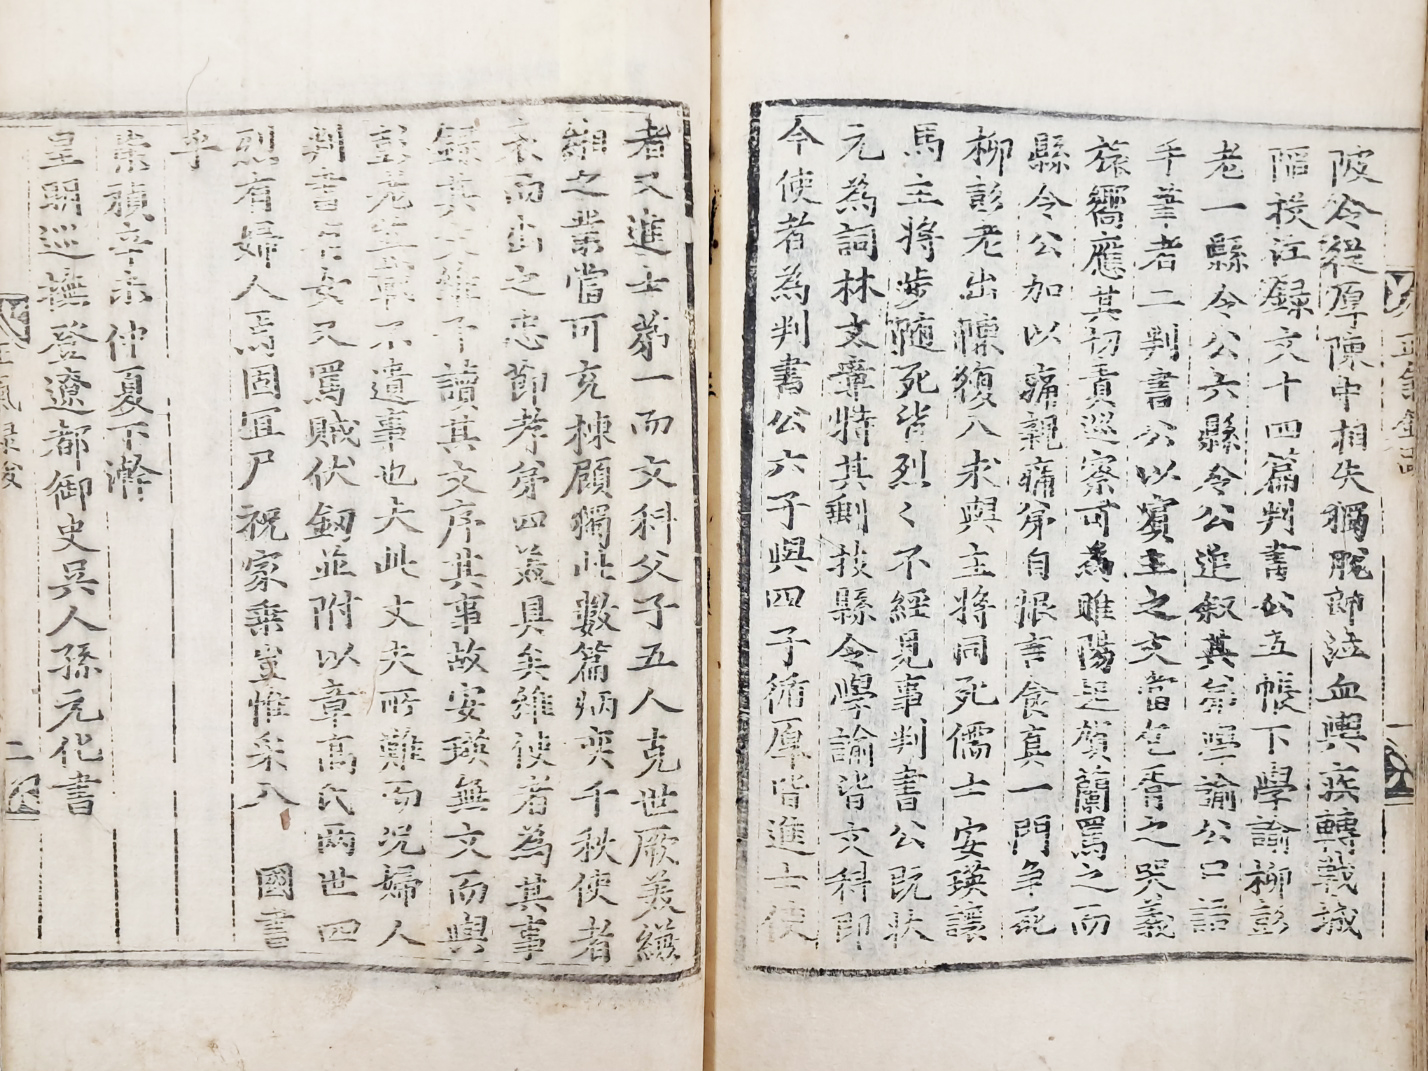 陂令從厚陳中相失獨脫師泣血輿疾轉戰誠
陷採江錄文十四篇判書公五帳下學諭柳彭
老一縣令公六縣令公追叙其第學諭公曰語
手筆者二判書公以賓主之文當包胥之哭義
旅嚮應其切責巡察可為睢陽逞賀蘭罵之而
縣令公加以痛親痛弟自恨言食真一門爭死
柳彭老出陳復入求與主將同死儒士安瑛讓
馬主將步隨死皆烈々不經見事判書公既狀
元為詞林文章特其剩技縣令學諭皆文科即
今使者為判書公六子與四子循厚皆進士使
者又進士第一而文科父子五人克世厥美續
之業嘗可充棟顧獨此數篇炳奕千秋使者
衣而出之忠節孝弟四美具矣維使者為其事
錄其文維予讀其文序其事故安瑛無文而與
彭老生章不遺事也夫此丈夫所難而況婦人
判書二女又罵賊伏釼並附以章高氏兩世四
烈有婦人焉固宜尸祝家乘豈惟采入 國書
乎
崇禎辛未仲夏下澣
皇明巡撫登遼都御史吳人孫元化書
正氣錄
一
二